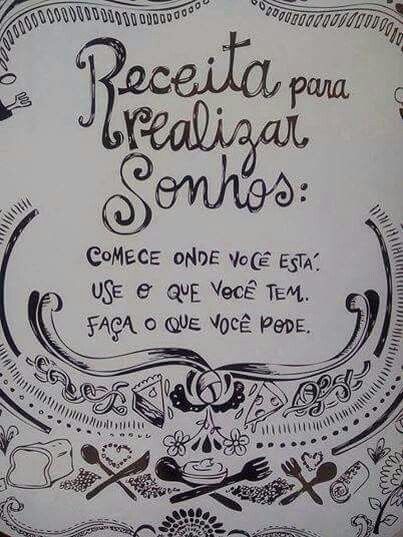 Receita para
realizar
Sonhos:
COMECE ONDE VOCÊ ESTÁ.
USE O QUE VOCÊ TEM.
FAÇA O QUE VOCÊ PODE.